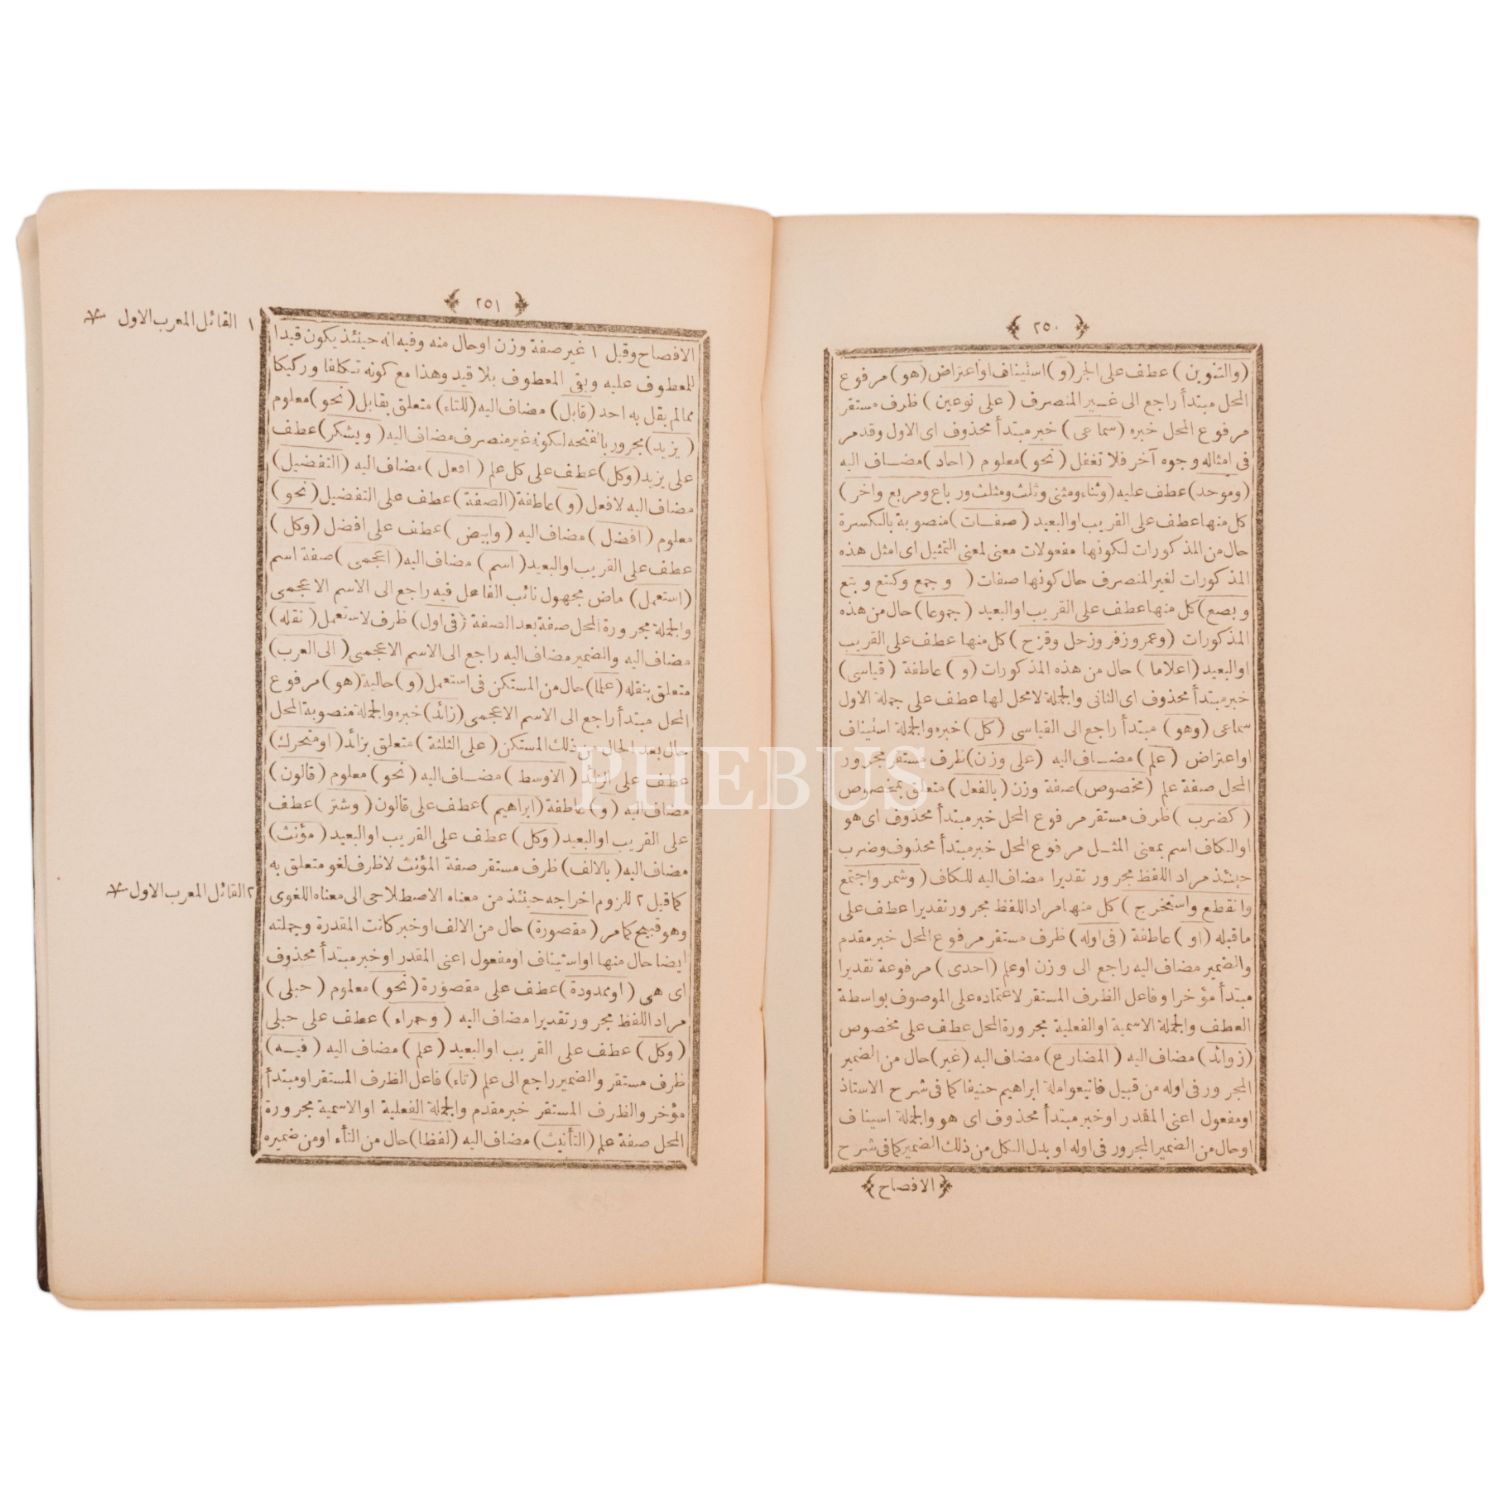 ٢٥٠
(والتنوين) عطف على الجر (و) استيناف او اعتراض (هو) مرفوع
المحل مبتدأ راجع الى غير المنصرف (على نوعين) ظرف مستقر
مرفوع المحل خبره (سماعى) خبر مبتدأ محذوف اى الاول وقد مر
فى امثاله وجوه آخر فلا تغفل (نحو) معلوم (احاد) مضاف اليه
(وموحد) عطف عليه (وثناء ومثنى وثلث ومثلث ورباع ومربع واخر)
كل منها عطف على القريب او البعيد (صفات) منصوبة بالكسرة
حال من المذكورات لكونها مفعولات معنى لمعنى التمثيل اى امثل هذه
المذكورات لغير المنصرف حال كونها صفات (وجمع وكتع وبتع
وبصع) كل منها عطف على القريب او البعيد (جموعا) حال من هذه
المذكورات (وعمر وزفر وزحل وقزح) كل منها عطف على القريب
او البعيد (اعلاما) حال من هذه المذكورات (و) عاطفة (قياسى)
خبر مبتدأ محذوف اى الثانى والجملة لامحل لها عطف على جملة الاول
سماعى (وهو) مبتدأ راجع الى القياسى (كل) خبره والجملة استيناف
او اعتراض (علم) مضاف اليه (على وزن) ظرف مستقر مجرور
المحل صفة علم (مخصوص) صفة وزن (بالفعل) متعلق بمخصوص
(كضرب) ظرف مستقر مرفوع المحل خبر مبتدأ محذوف اى هو
او الكاف اسم بمعنى المثل مرفوع المحل خبر مبتدأ محذوف وضرب
حينئذ مراد اللفظ مجرور تقديرا مضاف اليه للكاف (وشمر واجتمع
وانقطع واستخرج) كل منها مراد اللفظ مجرور تقديرا عطف على
ما قبله (او) عاطفة (فى اوله) ظرف مستقر مرفوع المحل خبر مقدم
والضمير مضاف اليه راجع الى وزن او علم (احدى) مرفوعة تقديرا
مبتدأ مؤخرا وفاعل الظرف المستقر لاعتماده على الموصوف بواسطة
العطف والجملة الاسمية او الفعلية مجرورة المحل عطف على مخصوص
(زوائد) مضاف اليه (المضارع) مضاف اليه (غير) حال من الضمير
المجرور فى اوله من قبيل فاتبعوا ملة ابراهيم حنيفا كما فى شرح الاستاذ
او مفعول اعنى المقدر او خبر مبتدأ محذوف اى هو والجملة استيناف
او حال من الضمير المجرور فى اوله او بدل الكل من ذلك الضمير كما فى شرح
الافصاح
٢٥١
الافصاح وقيل ١ غير صفة وزن او حال منه وفيه انه حينئذ يكون قيدا
للمعطوف عليه وبقى المعطوف بلا قيد وهذا مع كونه تكلفا وركيكا
مما لم يقل به احد (قابل) مضاف اليه (للتاء) متعلق بقابل (نحو) معلوم
(يزيد) مجرور بالفتحة لكونه غير منصرف مضاف اليه (ويشكر) عطف
على يزيد (وكل) عطف على كل علم (افعل) مضاف اليه (التفضيل)
مضاف اليه لافعل (و) عاطفة (الصفة) عطف على التفضيل (نحو)
معلوم (افضل) مضاف اليه (وابيض) عطف على افضل (وكل)
عطف على القريب او البعيد (اسم) مضاف اليه (اعجمى) صفة اسم
(استعمل) ماض مجهول نائب الفاعل فيه راجع الى الاسم الاعجمى
والجملة مجرورة المحل صفة بعد الصفة (فى اول) ظرف لاستعمل (نقله)
مضاف اليه والضمير مضاف اليه راجع الى الاسم الاعجمى (الى العرب)
متعلق بنقله (علما) حال من المستكن فى استعمل (و) حالية (هو) مرفوع
المحل مبتدأ راجع الى الاسم الاعجمى (زائد) خبره والجملة منصوبة المحل
حال بعد الحال من ذلك المستكن (على الثلثة) متعلق بزائد (او متحرك)
عطف على الزائد (الاوسط) مضاف اليه (نحو) معلوم (قالون)
مضاف اليه (و) عاطفة (ابراهيم) عطف على قالون (وشتر) عطف
على القريب او البعيد (وكل) عطف على القريب او البعيد (مؤنث)
مضاف اليه (بالالف) ظرف مستقر صفة المؤنث لا ظرف لغو متعلق به
كما قيل ٢ للزوم اخراجه حينئذ من معناه الاصطلاحى الى معناه اللغوى
وهو قبيح كما مر (مقصورة) حال من الالف او خبر كانت المقدرة وجملته
ايضا حال منها او استيناف او مفعول اعنى المقدر او خبر مبتدأ محذوف
اى هى (او ممدودة) عطف على مقصورة (نحو) معلوم (حبلى)
مراد اللفظ مجرور تقديرا مضاف اليه (وحمراء) عطف على حبلى
(وكل) عطف على القريب او البعيد (علم) مضاف اليه (فيه)
ظرف مستقر والضمير راجع الى علم (تاء) فاعل الظرف المستقر او مبتدأ
مؤخر والظرف المستقر خبر مقدم والجملة الفعلية او الاسمية مجرورة
المحل صفة علم (التأنيث) مضاف اليه (لفظا) حال من التاء او من ضميره
١ القائل المعرب الاول
٢ القائل المعرب الاول
PHEBUS